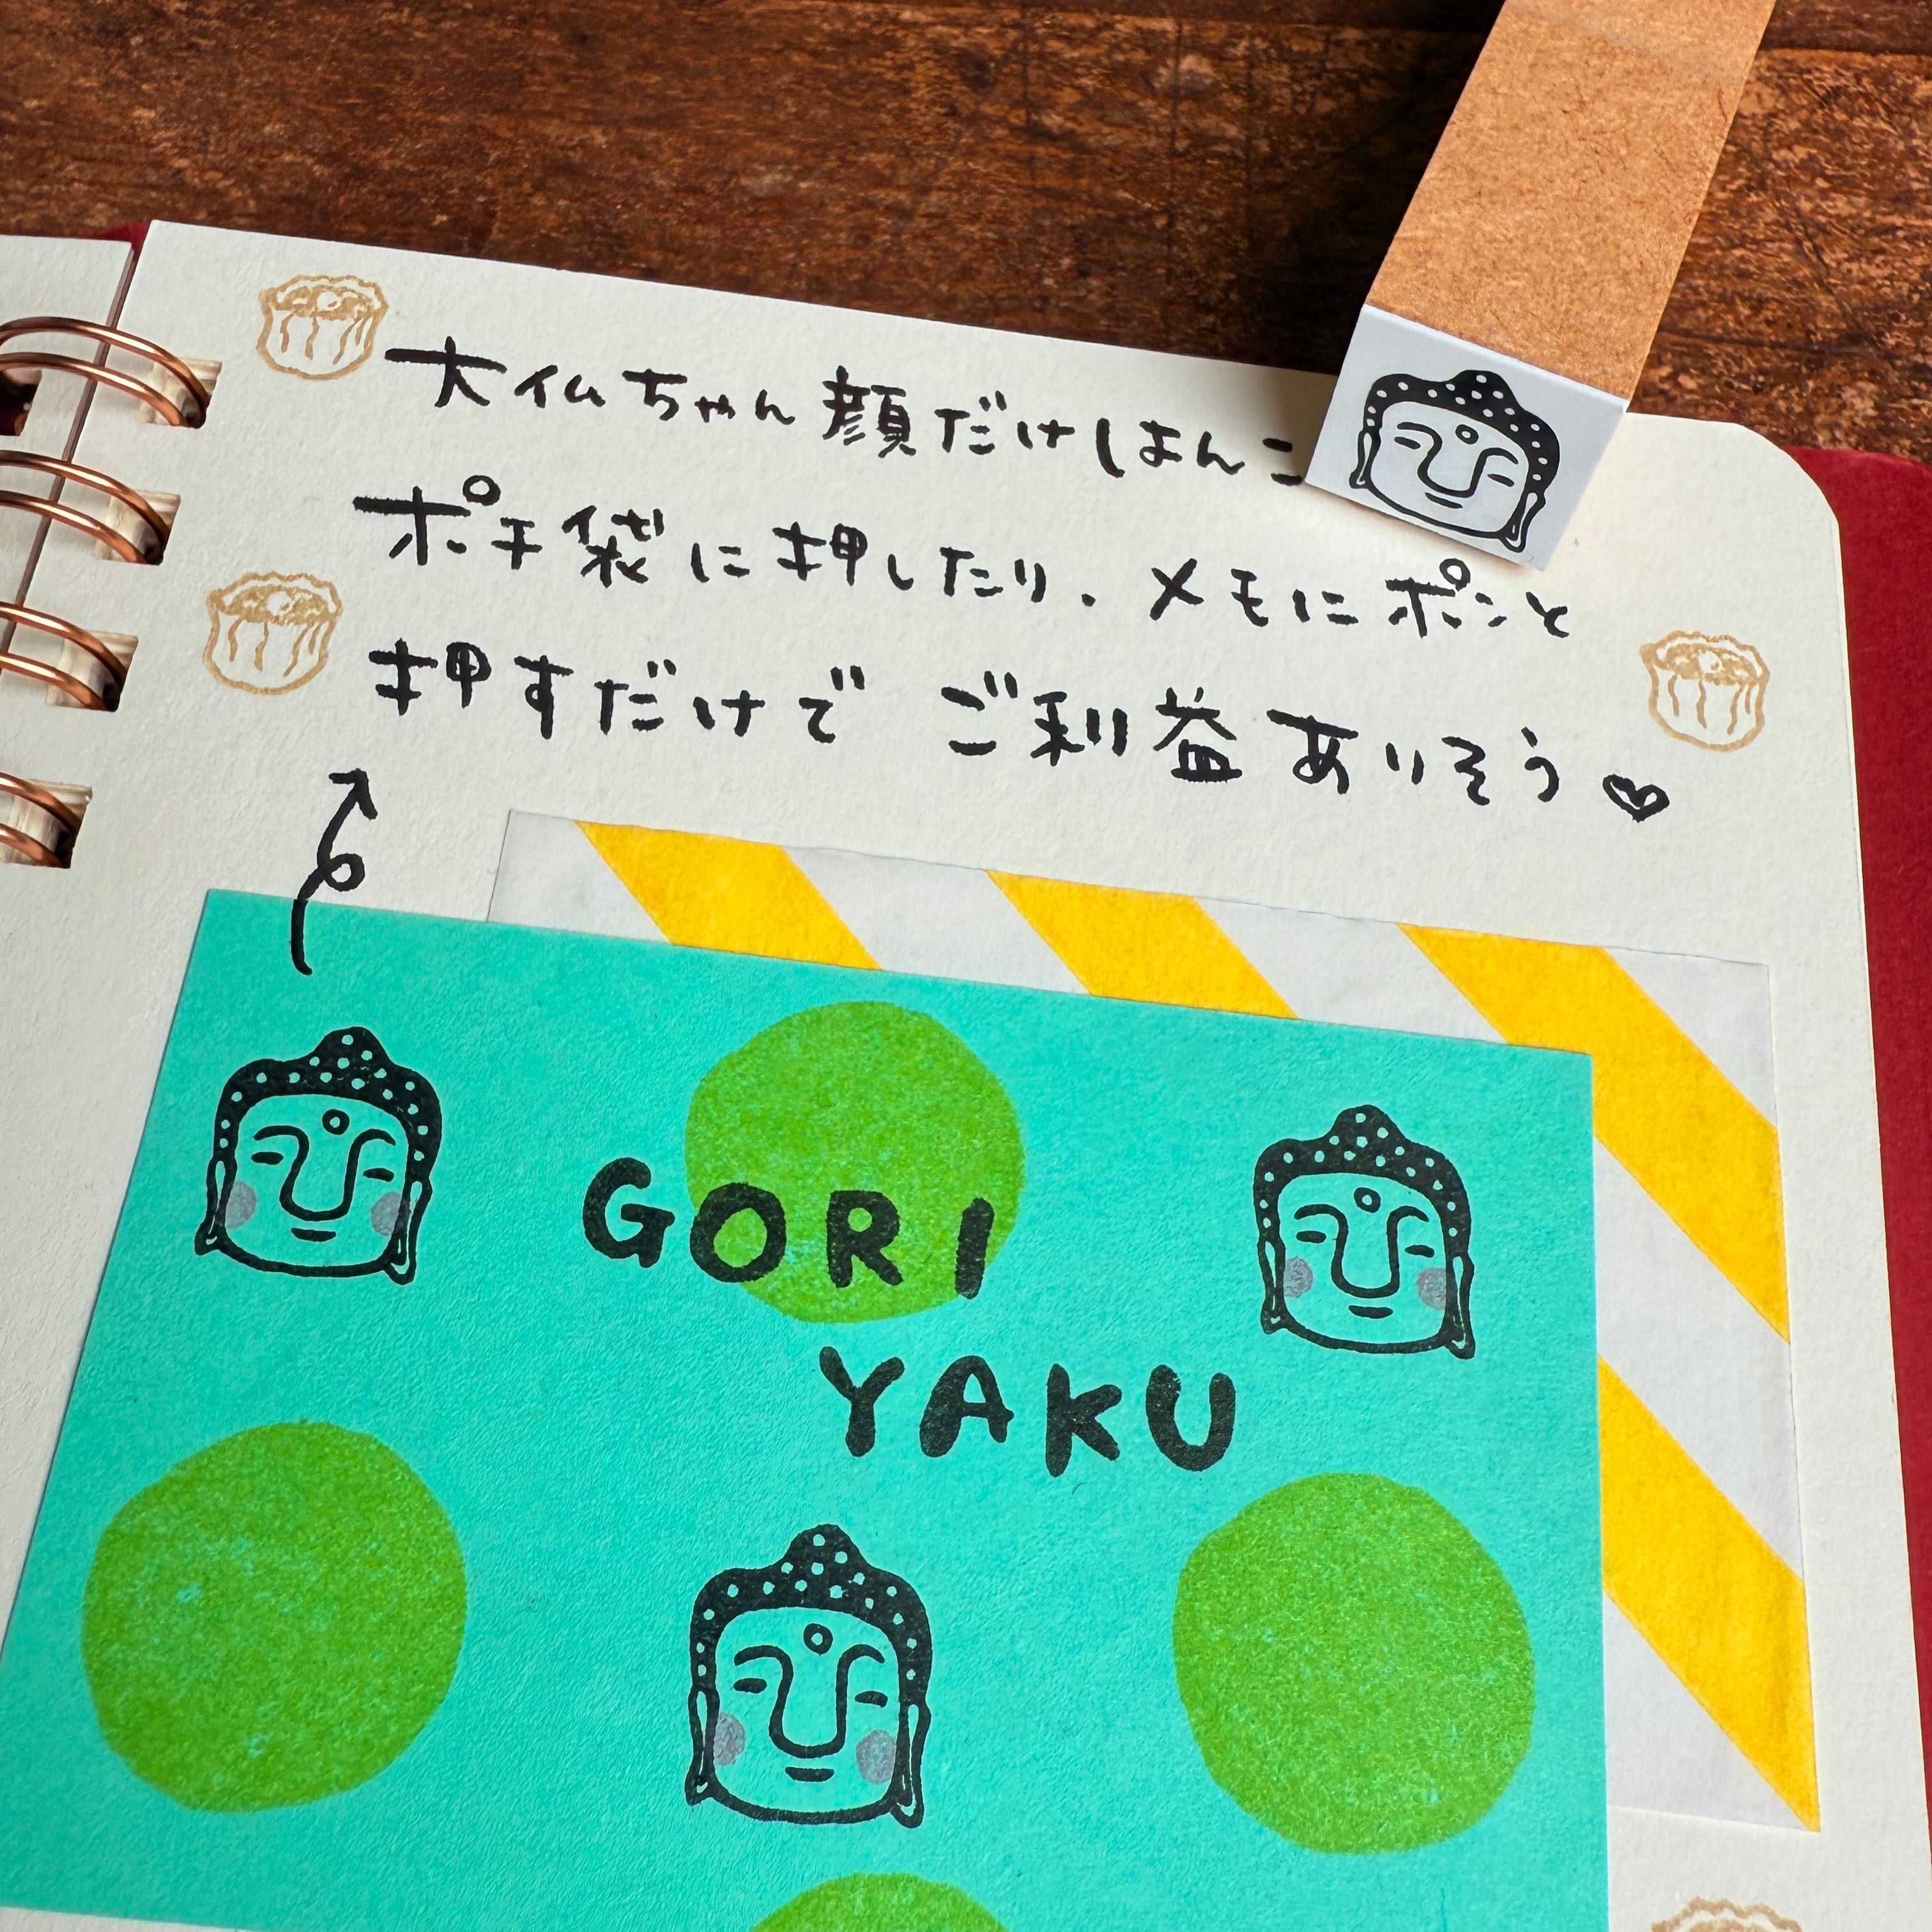 大仏ちゃん顔だけはんこ
ポチ袋に押したり、メモにポンと
押すだけで ご利益ありそう♥
GORI
YAKU